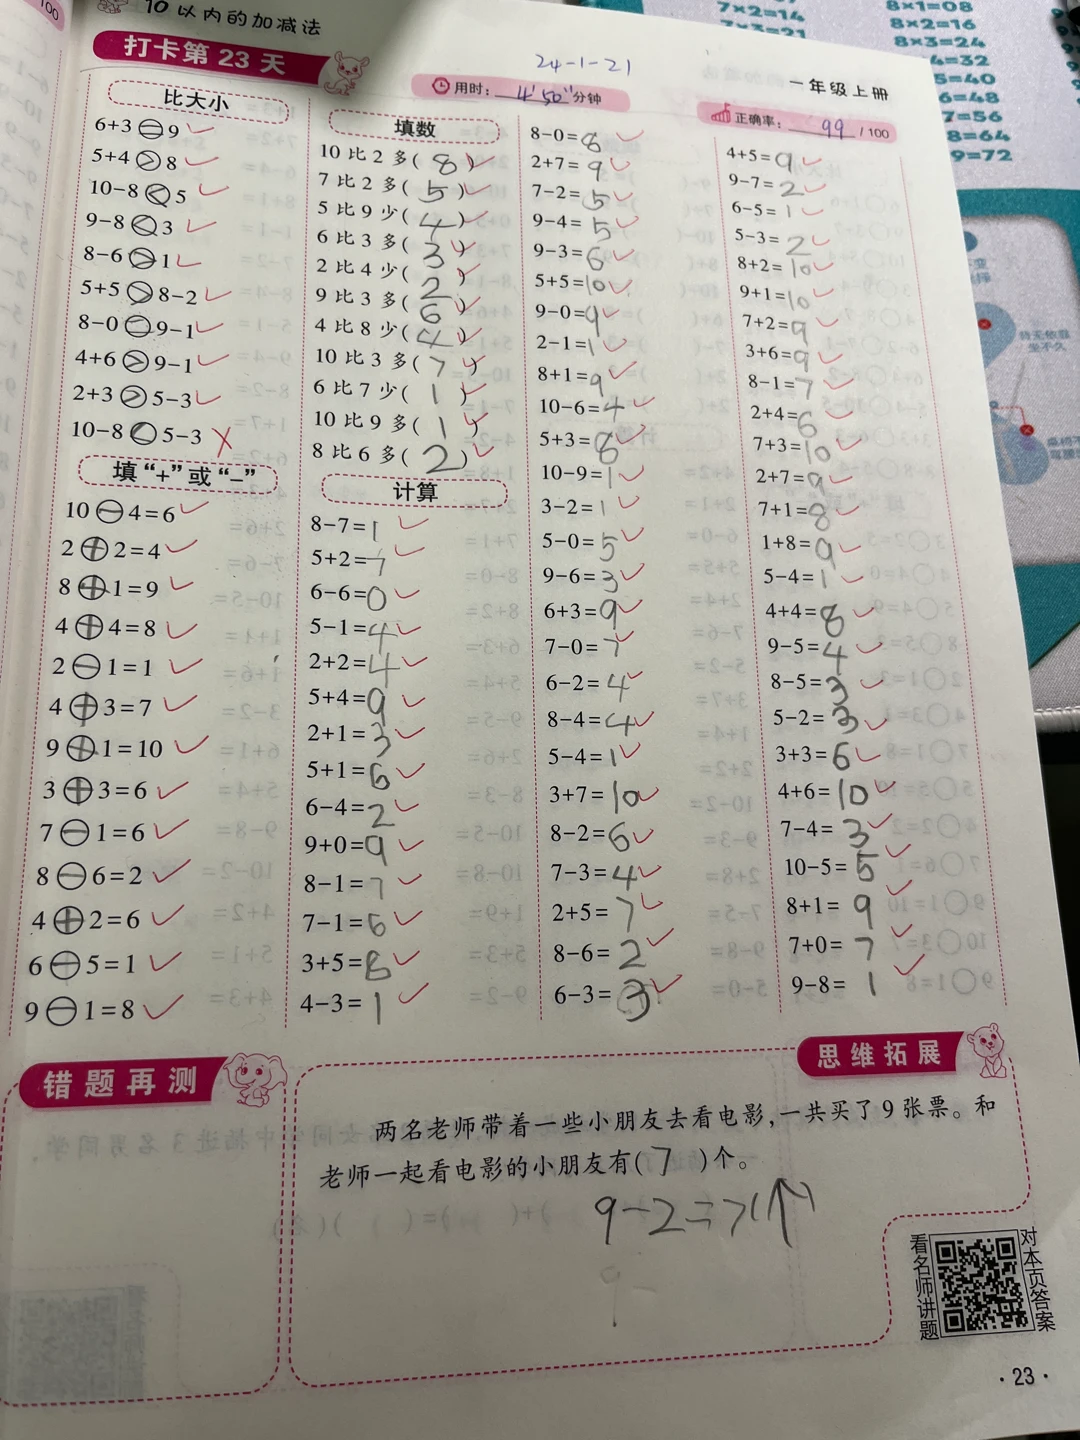 10 以内的加减法
打卡第 23 天
24-1-21
用时: 4′50″ 分钟
一年级上册
正确率: 99 /100
比大小
6+3=9
5+4>8
10-8<5
9-8<3
8-6>1
5+5>8-2
8-0=9-1
4+6>9-1
2+3>5-3
10-8<5-3
填“+”或“-”
10-4=6
2+2=4
8+1=9
4+4=8
2-1=1
4+3=7
9+1=10
3+3=6
7-1=6
8-6=2
4+2=6
6-5=1
9-1=8
填数
10 比 2 多(8)
7 比 2 多(5)
5 比 9 少(4)
6 比 3 多(3)
2 比 4 少(2)
9 比 3 多(6)
4 比 8 少(4)
10 比 3 多(7)
6 比 7 少(1)
10 比 9 多(1)
8 比 6 多(2)
计算
8-7=1
5+2=7
6-6=0
5-1=4
2+2=4
5+4=9
2+1=3
5+1=6
6-4=2
9+0=9
8-1=7
7-1=6
3+5=8
4-3=1
8-0=8
2+7=9
7-2=5
9-4=5
9-3=6
5+5=10
9-0=9
2-1=1
8+1=9
10-6=4
5+3=8
10-9=1
3-2=1
5-0=5
9-6=3
6+3=9
7-0=7
6-2=4
8-4=4
5-4=1
3+7=10
8-2=6
7-3=4
2+5=7
8-6=2
6-3=3
4+5=9
9-7=2
6-5=1
5-3=2
8+2=10
9+1=10
7+2=9
3+6=9
8-1=7
2+4=6
7+3=10
2+7=9
7+1=8
1+8=9
5-4=1
4+4=8
9-5=4
8-5=3
5-2=3
3+3=6
4+6=10
7-4=3
10-5=5
8+1=9
7+0=7
9-8=1
错题再测
思维拓展
两名老师带着一些小朋友去看电影,一共买了 9 张票。和
老师一起看电影的小朋友有(7)个。
9-2=7(个)
看名师讲题
对本页答案
·23·
7×2=14
8×1=08
8×2=16
8×3=24